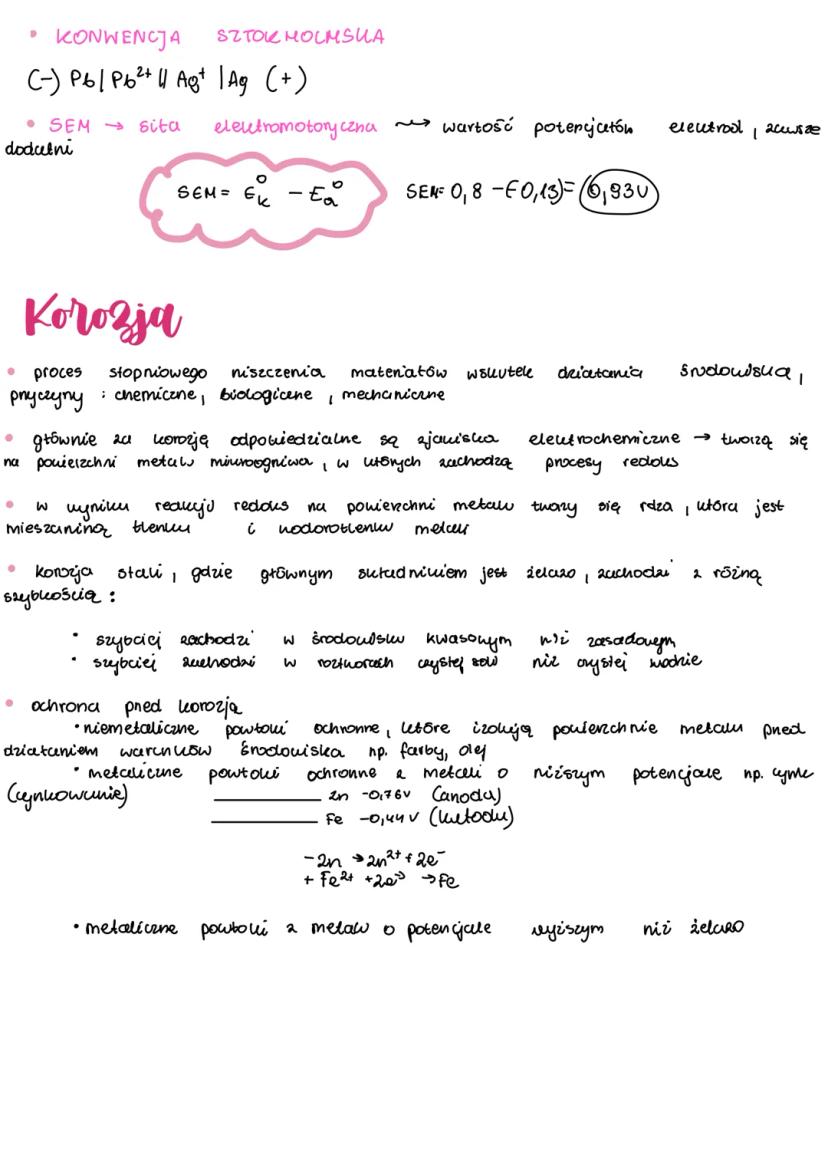 • KONWENCJA SZTOKHOLMSKA
(-) Pb | Pb²⁺ || Ag⁺ | Ag (+)
• SEM → siła elektromotoryczna ⟿ wartość potencjałów elektrod, zawsze
dodatni
SEM = E⁰ₖ - Eₐ⁰ SEM= 0,8 -(-0,13)= 0,93V
Korozja
• proces stopniowego niszczenia materiałów wskutek działania środowiska,
przyczyny : chemiczne, biologiczne, mechaniczne
• głównie za korozję odpowiedzialne są zjawiska elektrochemiczne → tworzą się
na powierzchni metalu mikroogniwa, w których zachodzą procesy redoks
• w wyniku reakcji redoks na powierzchni metalu tworzy się rdza, która jest
mieszaniną tlenku i wodorotlenku metali
• korozja stali, gdzie głównym składnikiem jest żelazo, zachodzi z różną
szybkością :
• szybciej zachodzi w środowisku kwasowym niż zasadowym
• szybciej zachodzi w roztworach czystej soli niż czystej wodzie
• ochrona przed korozją
• niemetaliczne powłoki ochronne, które izolują powierzchnie metalu przed
działaniem warunków środowiska np. farby, olej
• metaliczne powłoki ochronne z metali o niższym potencjale np. cynk
(cynkowanie) Zn -0,76V (anoda)
Fe -0,44V (katoda)
- Zn → Zn²⁺ + 2e⁻
+ Fe²⁺ + 2e⁻ → Fe
• metaliczne powłoki z metalu o potencjale wyższym niż żelazo